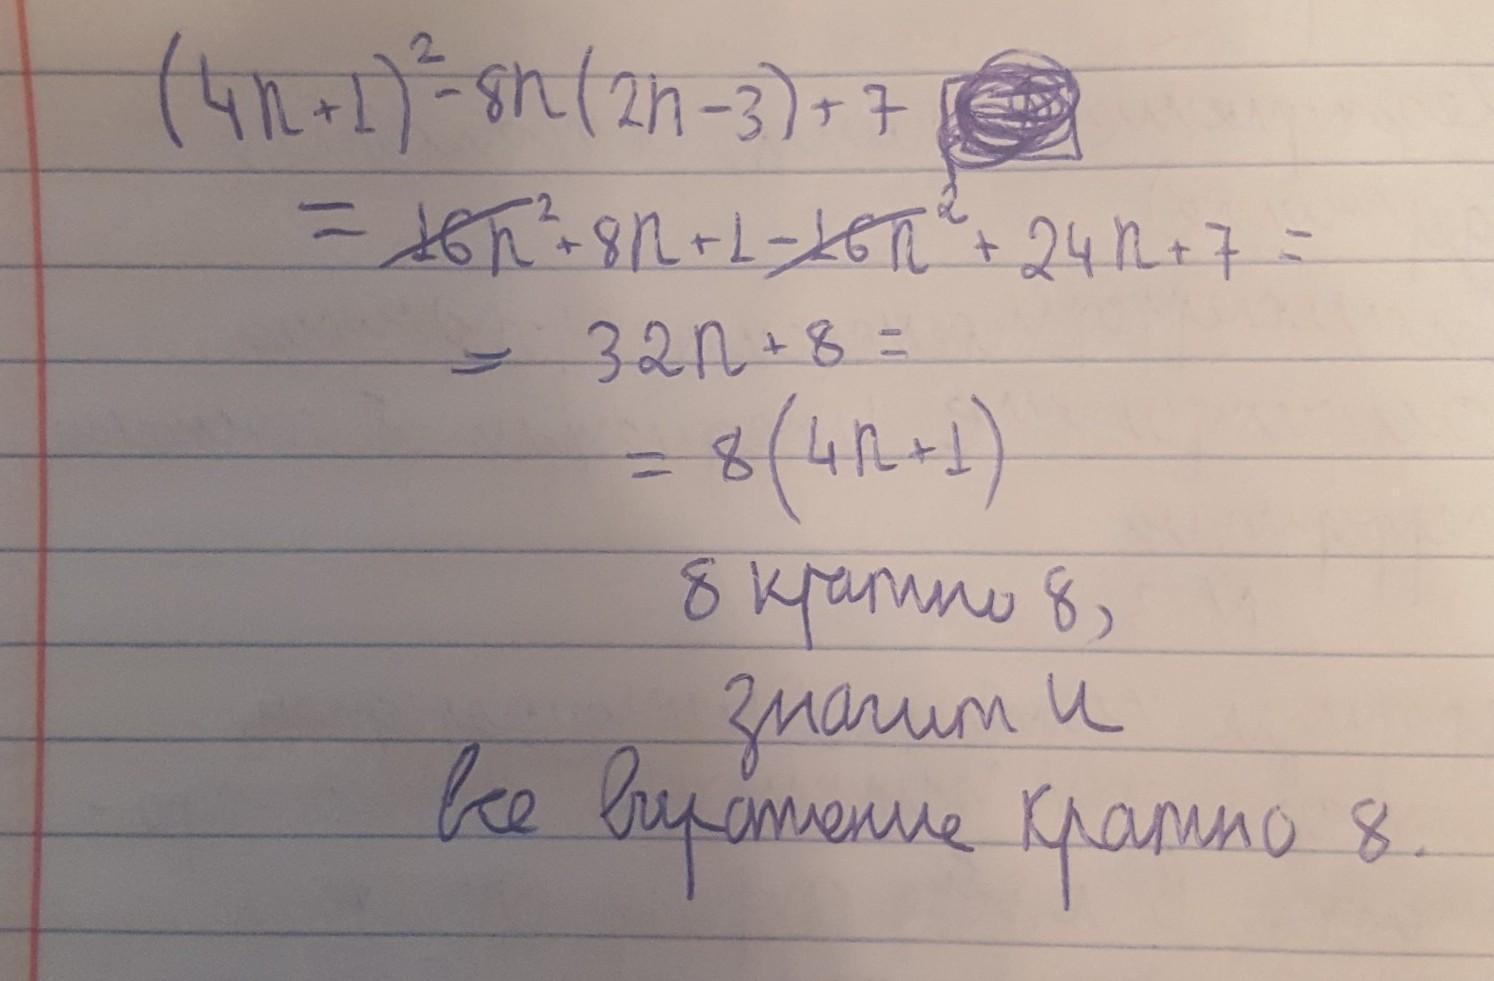 (4n+1)² - 8n(2n-3) + 7
= 16n² + 8n + 1 - 16n² + 24n + 7 =
= 32n + 8 =
= 8(4n+1)
8 кратно 8,
значит и
все выражение кратно 8.